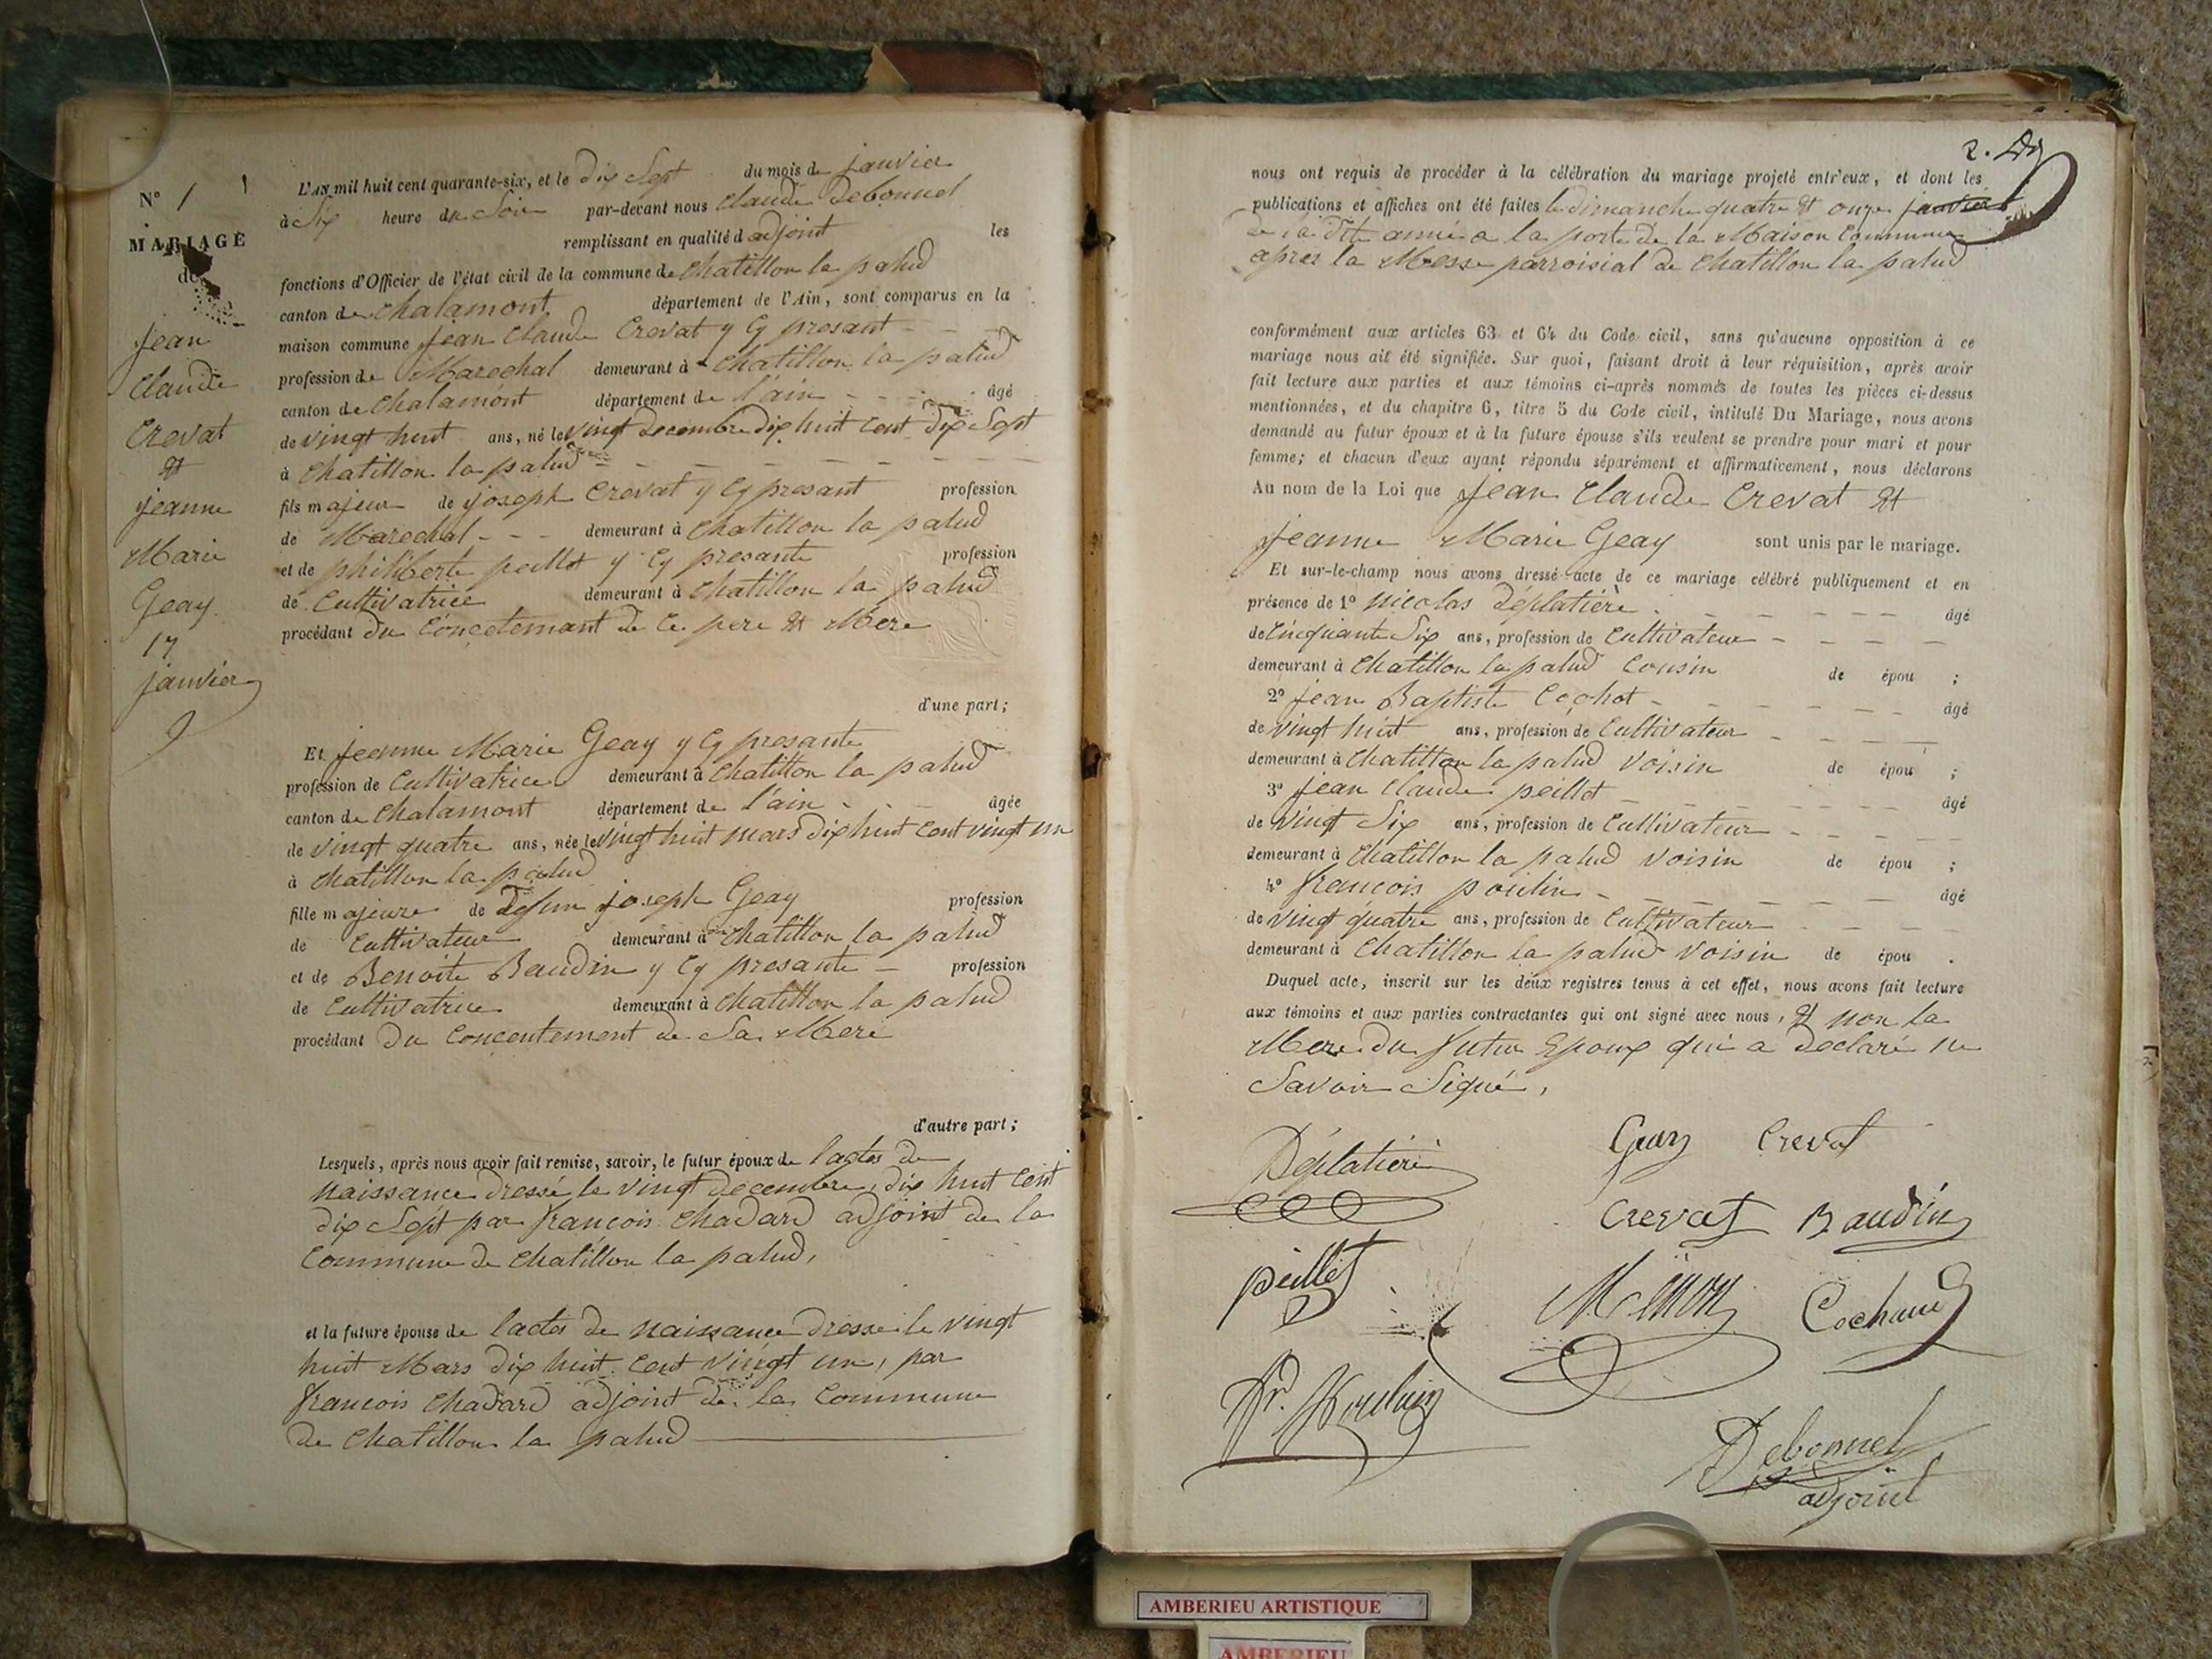 N° 1
MARIAGE
de
Jean
Claude
Crevat
et
jeanne
Marie
Geay
17
janvier
L'AN mil huit cent quarante-six, et le dix Sept du mois de janvier
à Six heure du Soir par-devant nous Claude Debonnel
remplissant en qualité d adjoint les
fonctions d'Officier de l'état civil de la commune de Chatillon la palud
canton de Chalamont département de l'Ain, sont comparus en la
maison commune Jean Claude Crevat y Cy presant
profession de Marechal demeurant à Chatillon la palud
canton de Chalamont département de l'ain âgé
de vingt huit ans, né le vingt decembre dix huit Cent dix Sept
à Chatillon la palud
fils majeur de joseph Crevat y Cy presant profession
de Marechal demeurant à Chatillon la palud
et de philiberte peillot y Cy presante profession
de Cultivatrice demeurant à Chatillon la palud
procédant du Concetemant de Ce pere et Mere
d'une part;
Et jeanne Marie Geay y Cy presante
profession de Cultivatrice demeurant à Chatillon la palud
canton de Chalamont département de l'ain âgée
de vingt quatre ans, née le vingt huit mars dix huit Cent vingt un
à Chatillon la palud
fille majeure de defun joseph Geay profession
de Cultivateur demeurant à Chatillon la palud
et de Benoite Baudin y Cy presante profession
de Cultivatrice demeurant à Chatillon la palud
procédant du Concentement de Sa Mere
d'autre part;
Lesquels, après nous avoir fait remise, savoir, le futur époux de lactes de
naissance dressé le vingt decembre, dix huit Cent
dix Sept par francois Chadard adjoint de la
Commune de Chatillon la palud,
et la future épouse de lactes de naissance dressé le vingt
huit Mars dix huit Cent vingt un, par
francois Chadard adjoint de la Commune
de Chatillon la palud
2.
nous ont requis de procéder à la célébration du mariage projeté entr'eux, et dont les
publications et affiches ont été faites le dimanche quatre et onze janvier
de la dite année a la porte de la Maison Commune
apres la Messe parroisial de Chatillon la palud
conformément aux articles 63 et 64 du Code civil, sans qu'aucune opposition à ce
mariage nous ait été signifiée. Sur quoi, faisant droit à leur réquisition, après avoir
fait lecture aux parties et aux témoins ci-après nommés de toutes les pièces ci-dessus
mentionnées, et du chapitre 6, titre 5 du Code civil, intitulé Du Mariage, nous avons
demandé au futur époux et à la future épouse s'ils veulent se prendre pour mari et pour
femme; et chacun d'eux ayant répondu séparément et affirmativement, nous déclarons
Au nom de la Loi que Jean Claude Crevat et
Jeanne Marie Geay sont unis par le mariage.
Et sur-le-champ nous avons dressé acte de ce mariage célébré publiquement et en
présence de 1° nicolas déplatière âgé
de Cinquante Six ans, profession de Cultivateur
demeurant à Chatillon la palud Cousin de épou ;
2° jean Baptiste Cochot âgé
de vingt huit ans, profession de Cultivateur
demeurant à Chatillon la palud voisin de épou ;
3° jean Claude peillot âgé
de vingt Six ans, profession de Cultivateur
demeurant à Chatillon la palud voisin de épou ;
4° francois poulin âgé
de vingt quatre ans, profession de Cultivateur
demeurant à Chatillon la palud voisin de épou .
Duquel acte, inscrit sur les deux registres tenus à cet effet, nous avons fait lecture
aux témoins et aux parties contractantes qui ont signé avec nous, et non la
Mere du futur Epoux qui a declaré ne
Savoir Signé,
Geay Crevat
Déplatière
Crevat Baudin
peillet
Cochaud
Debonnel
adjoint
AMBERIEU ARTISTIQUE
AMBERIEU